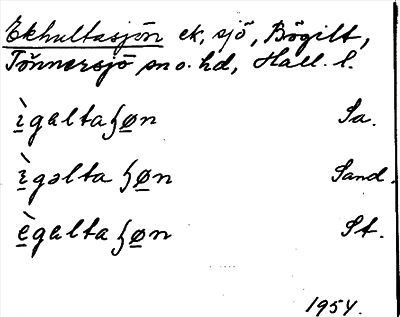 Ekhultasjön ek, sjö, Bögilt,
Tönnersjö sn o. hd, Hall. l.
ìgəltaɧøn Sa.
ìgəltaɧøn Sand.
ègəltaɧøn St.
1954.